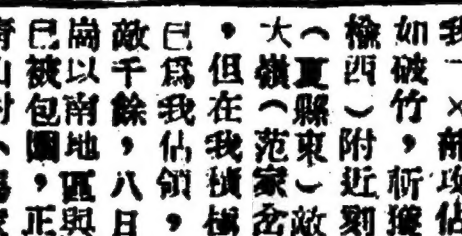 我一×部攻佔
如破竹，斬獲
檢西）附近刻
（夏縣東）敵
大嶺（范家岔
，但在我積極
已爲我佔領，
敵千餘，八日
崗以南地區與
已被包圍，正